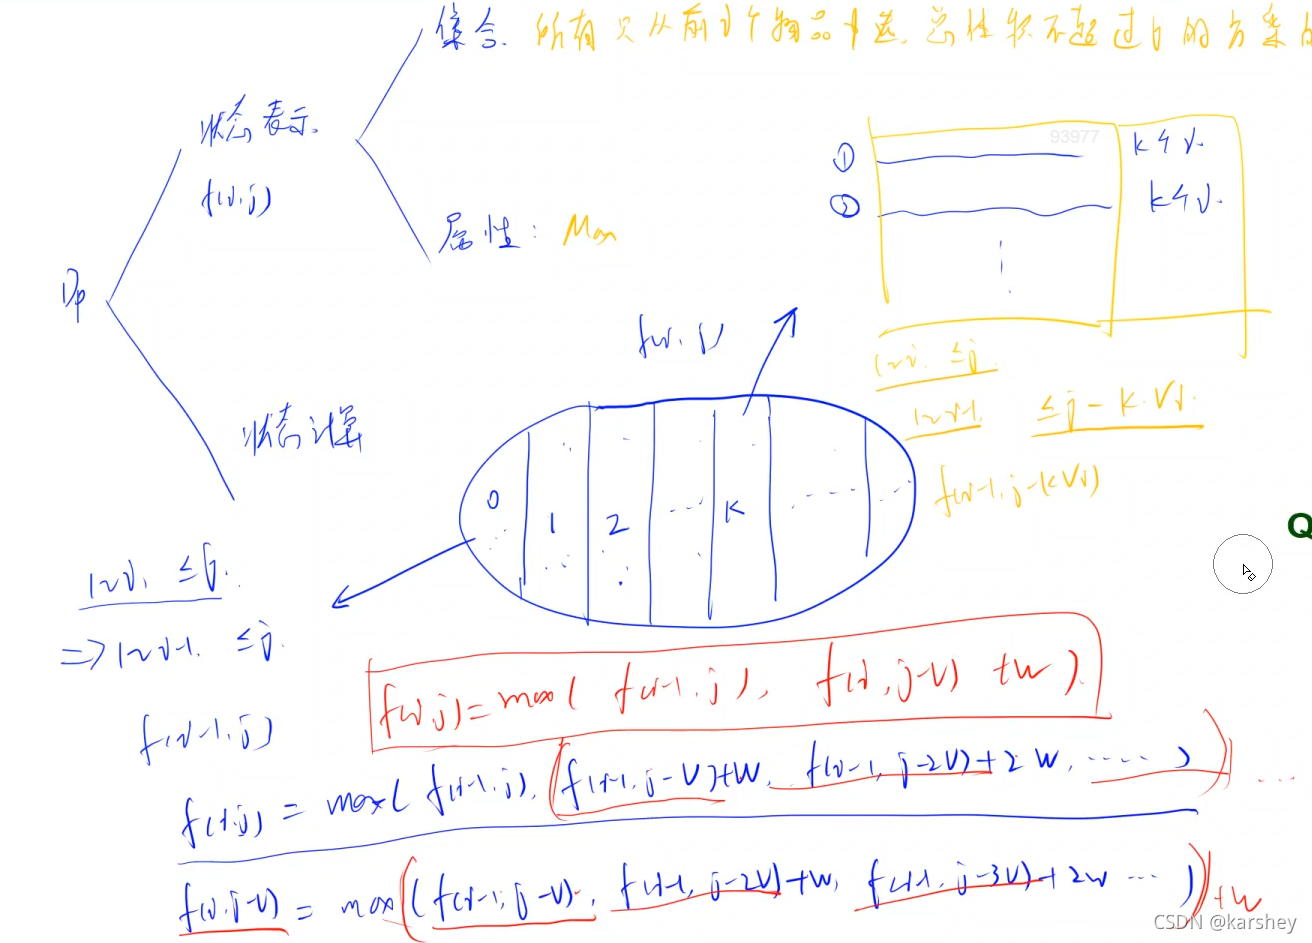 集合. 所有只从前i个物品中选,总体积不超过j的方案的
状态表示.
f(i,j)
属性: Max
Dp
状态计算
93977
① k个i.
② k个i.
f(i,j)
1~i. ≤j
1~i-1. ≤j-k·Vi.
f(i-1,j-kVi)
0 1 2 ... k ......
Q
1~i, ≤j.
=> 1~i-1. ≤j.
f(i-1,j)
f(i,j)=max( f(i-1,j), f(i,j-V) +W ).
f(i,j) = max( f(i-1,j), f(i-1,j-V)+W, f(i-1,j-2V)+2W, ..... ) ....
f(i,j-V) = max( f(i-1,j-V), f(i-1,j-2V)+W, f(i-1,j-3V)+2W ... ) +W
CSDN @karshey